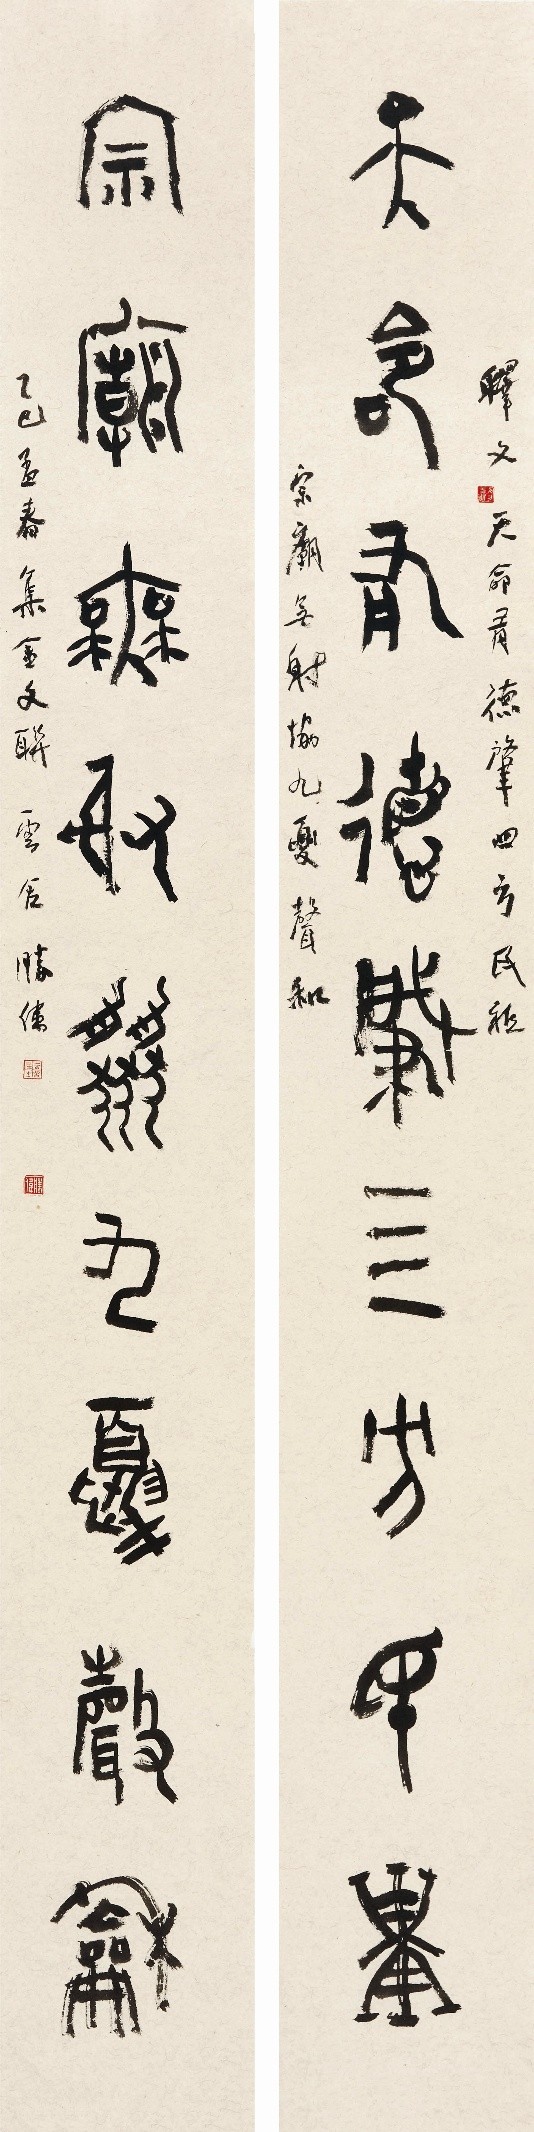 天命有德肇四方民祉
釋文 天命有德肇四方民祉
宗廟無射協九夏聲和
宗廟無射協九夏聲龢
乙巳孟春集金文聯 雲舍勝偉